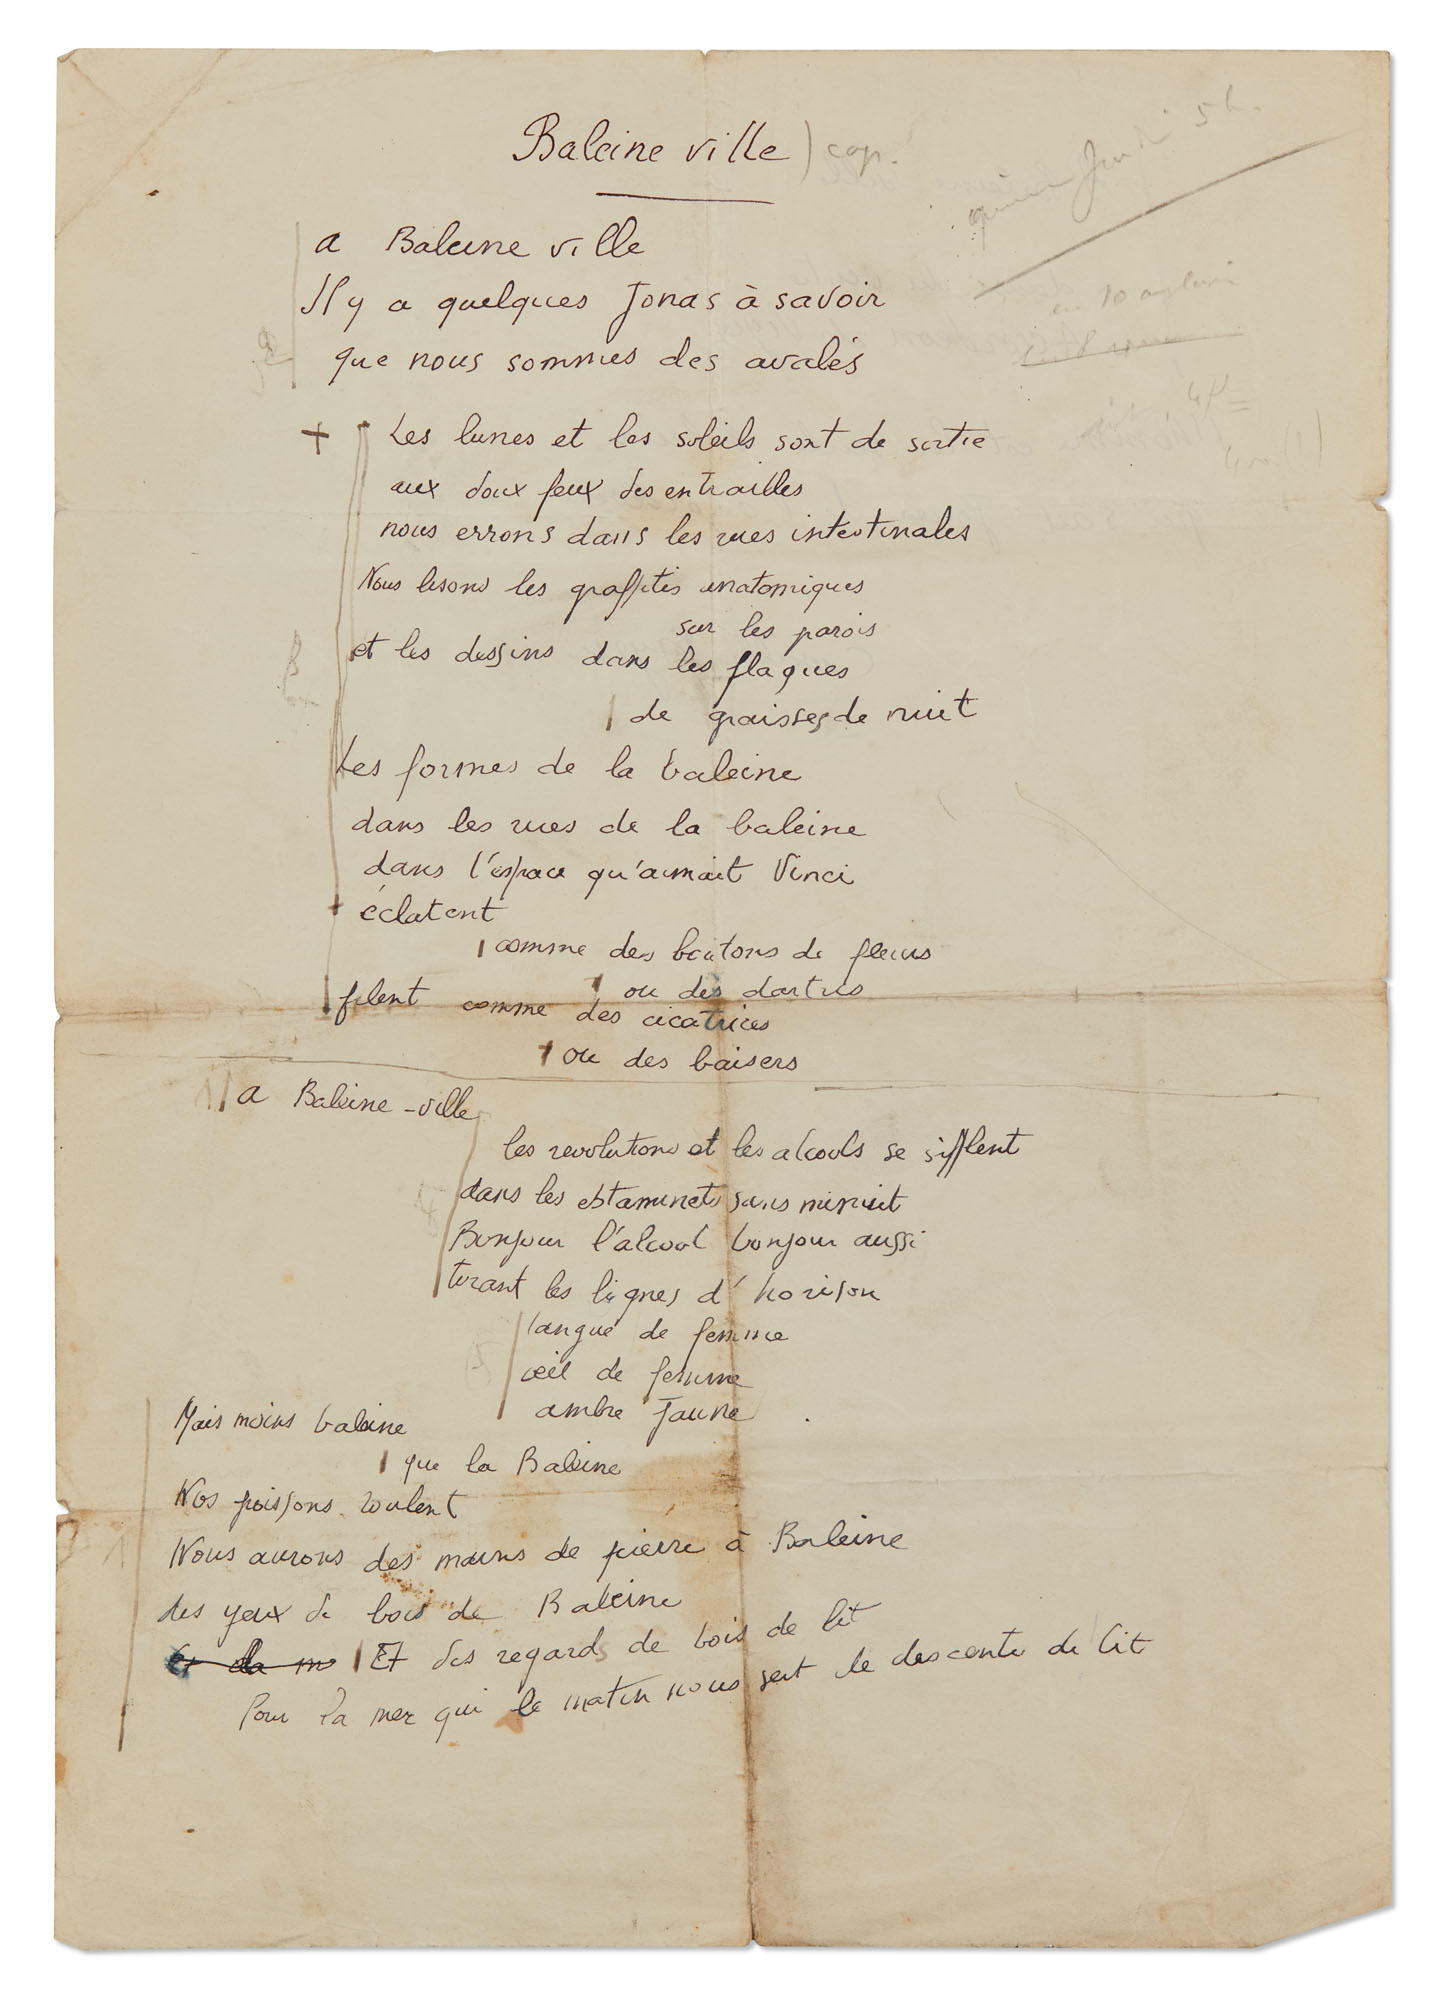 Baleine ville) cap.
5 h.
a Baleine ville
Il y a quelques Jonas à savoir
que nous sommes des avalés
+ Les lunes et les soleils sont de sortie
aux doux feux des entrailles
nous errons dans les rues intestinales
Nous lisons les graffitis anatomiques
sur les parois
et les dessins dans les flaques
de graisses de nuit
Les formes de la baleine
dans les rues de la baleine
dans l'espace qu'aimait Vinci
éclatent
comme des boutons de fleurs
ou des dartres
filent comme des cicatrices
ou des baisers
a Baleine-ville
les revolutions et les alcools se sifflent
dans les estaminets sans minuit
Bonjour l'alcool bonjour aussi
tirant les lignes d'horison
langue de femme
œil de femme
ambre jaune
Mais moins baleine
que la Baleine
Nos poissons roulent
Nous aurons des mains de pierre à Baleine
des yeux de bois de Baleine
Et des regards de bois de lit
Pour la mer qui le matin nous sert de descente de lit